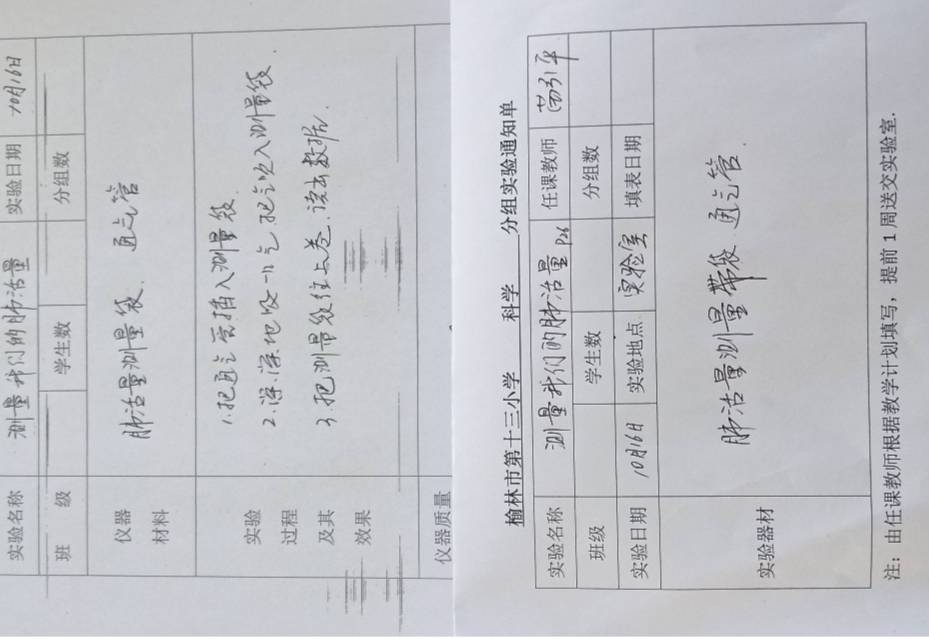 实验名称 测量我们的肺活量 实验日期 10月16日
班 级 学生数 分组数
仪器 材料 肺活量测量袋、通气管
实验 过程 及其 效果
1.把通气管插入测量袋
2.深深地吸一口气 把气吹入测量袋.
3.把测量袋往上卷.读出数据.
仪器质量
榆林市第十三小学 科学 分组实验通知单
实验名称 测量我们的肺活量 P26 任课教师
班级 学生数 分组数
实验日期 10月16日 实验地点 实验室 填表日期
实验器材 肺活量测量带袋 通气管.
注：由任课教师根据教学计划填写，提前1周送交实验室.